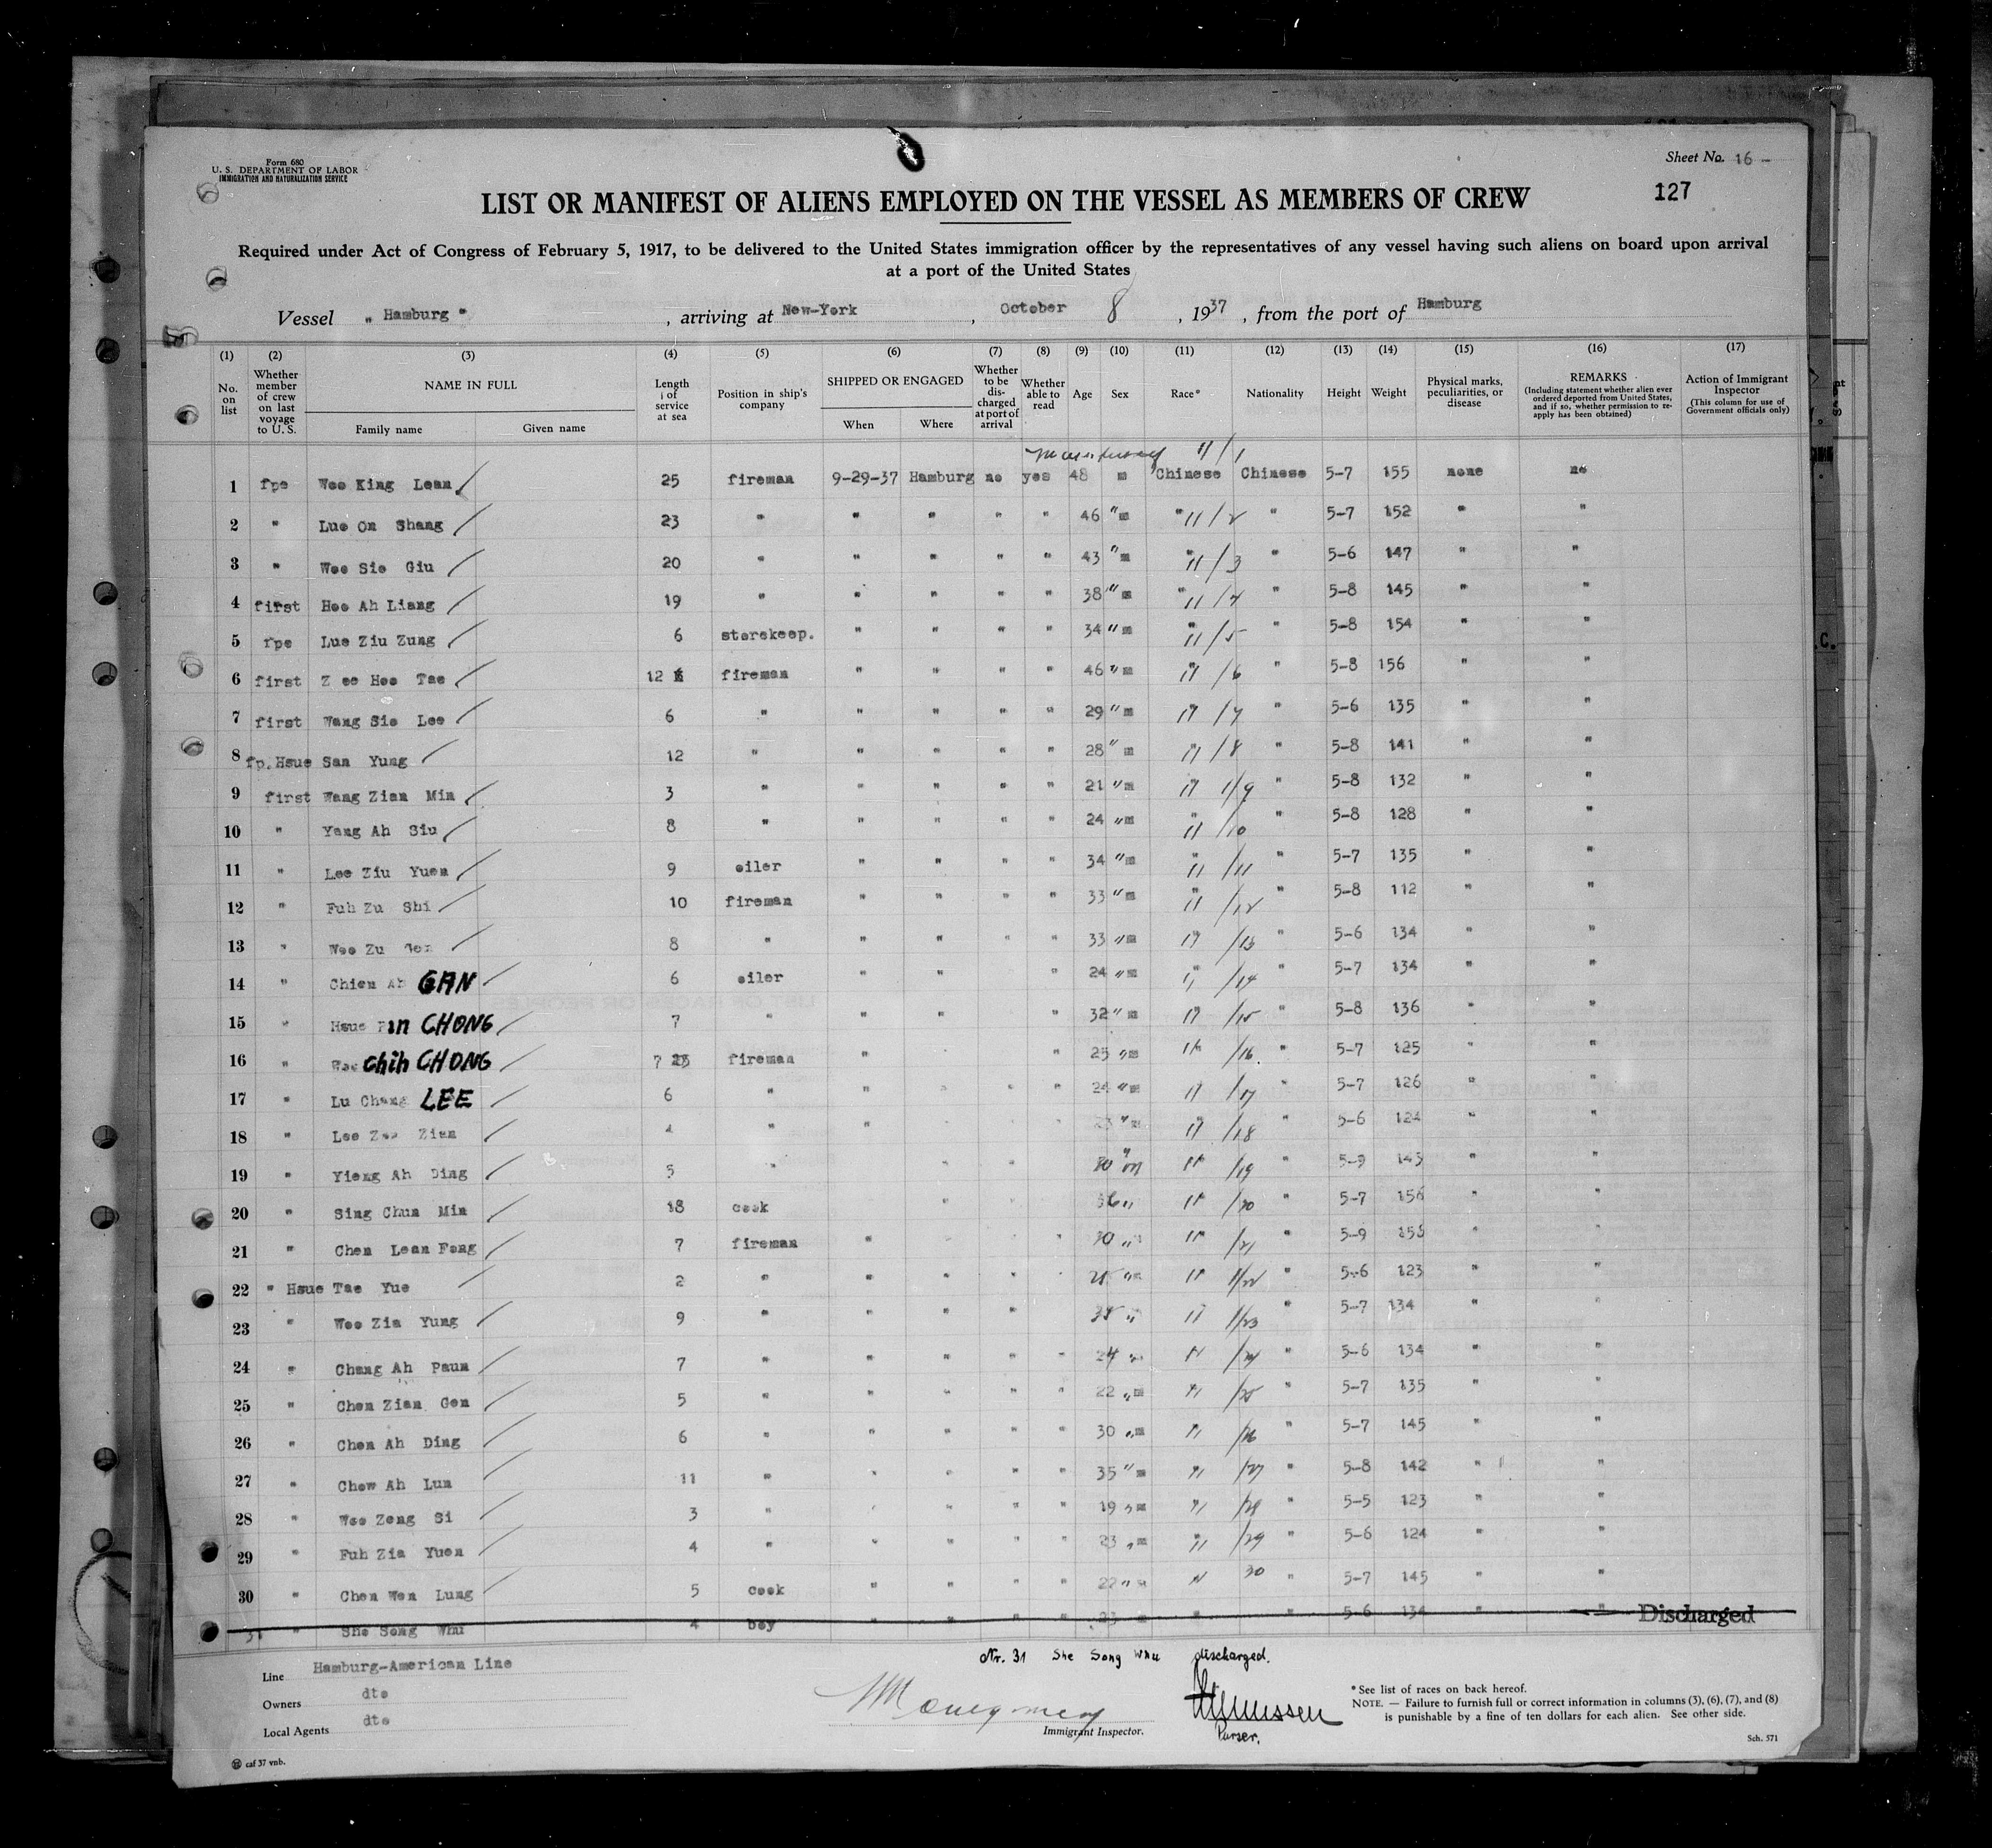 Form 680
U. S. DEPARTMENT OF LABOR
IMMIGRATION AND NATURALIZATION SERVICE
Sheet No. 16 -
127
LIST OR MANIFEST OF ALIENS EMPLOYED ON THE VESSEL AS MEMBERS OF CREW
Required under Act of Congress of February 5, 1917, to be delivered to the United States immigration officer by the representatives of any vessel having such aliens on board upon arrival
at a port of the United States
Vessel " Hamburg " , arriving at New-York , October 8 , 1937 , from the port of Hamburg
(1) (2) (3) (4) (5) (6) (7) (8) (9) (10) (11) (12) (13) (14) (15) (16) (17)
No. on list
Whether member of crew on last voyage to U. S.
NAME IN FULL
Family name Given name
Length of service at sea
Position in ship's company
SHIPPED OR ENGAGED
When Where
Whether to be discharged at port of arrival
Whether able to read
Age
Sex
Race*
Nationality
Height
Weight
Physical marks, peculiarities, or disease
REMARKS
(Including statement whether alien ever ordered deported from United States, and if so, whether permission to reapply has been obtained)
Action of Immigrant Inspector
(This column for use of Government officials only)
1 fpe Woo King Loan 25 fireman 9-29-37 Hamburg no yes 48 m Chinese 11/1 Chinese 5-7 155 none no
2 " Luo On Shang 23 " " " " " 46 " m " 11/2 " 5-7 152 " "
3 " Woo Sie Giu 20 " " " " " 43 " m " 11/3 " 5-6 147 " "
4 first Hoo Ah Liang 19 " " " " " 38 " m " 11/4 " 5-8 145 " "
5 fpe Lue Ziu Zung 6 storekeep. " " " " 34 " m " 11/5 " 5-8 154 " "
6 first Z ee Hoo Tae 12 fireman " " " " 46 " m 11/6 " 5-8 156 " "
7 first Wang Sie Lee 6 " " " " " 29 " m 11/7 " 5-6 135 " "
8 fp. Hsue San Yung 12 " " " " " 28 " m 11/8 " 5-8 141 " "
9 first Wang Zian Min 3 " " " " " 21 " m 11/9 " 5-8 132 " "
10 " Yang Ah Siu 8 " " " " " 24 " m 11/10 " 5-8 128 " "
11 " Lee Ziu Yuen 9 oiler " " " " 34 " m 11/11 " 5-7 135 " "
12 " Fuh Zu Shi 10 fireman " " " " 33 " m 11/12 " 5-8 112 " "
13 " Woo Zu Gen 8 " " " " " 33 " m 11/13 " 5-6 134 " "
14 " Chien Ah GAN 6 oiler " " " 24 " m 11/14 " 5-7 134 " "
15 " Hsue Pin CHONG 7 " " " " 32 " m 11/15 " 5-8 136 " "
16 " Woo chih CHONG 7 fireman " " 25 " m 11/16 " 5-7 125 " "
17 " Lu Chang LEE 6 " " " " " 24 " m 11/17 " 5-7 126 " "
18 " Lee Zian 4 " " " 23 " m 11/18 " 5-6 124 " "
19 " Yieng Ah Ding 5 " " " " m 11/19 " 5-9 145 " "
20 " Sing Chun Min 18 cook " " 11/20 " 5-7 156 " "
21 " Chen Loan Fong 7 fireman " " " " 30 " 11/21 " 5-9 "
22 " Hsue Tae Yue 2 " " " " " m 11/22 " 5-6 123 " "
23 " Woo Zia Yung 9 " " " " " 11/23 " 5-7 134 " "
24 " Chang Ah Paun 7 " " " " " 24 " 11/24 " 5-6 134 " "
25 " Chen Zian Gen 5 " " " " " 22 " m 11/25 " 5-7 135 " "
26 " Chen Ah Ding 6 " " " " " 30 " m 11/26 " 5-7 145 " "
27 " Chow Ah Lun 11 " " " " " 35 " m 11/27 " 5-8 142 " "
28 " Woo Zeng Si 3 " " " " " 19 " m 11/28 " 5-5 123 " "
29 " Fuh Zia Yuen 4 " " " " " 23 " m 11/29 " 5-6 124 " "
30 " Chen Wen Lung 5 cook " " " " 22 " m 11 30 " 5-7 145 " "
31 " She Song Whu 4 boy " " " " 23 " " 5-6 134 " " Discharged
Nr. 31 She Song Whu discharged.
Line Hamburg-American Line
Owners dto
Local Agents dto
Immigrant Inspector.
Purser.
* See list of races on back hereof.
NOTE. — Failure to furnish full or correct information in columns (3), (6), (7), and (8)
is punishable by a fine of ten dollars for each alien. See other side.
Sch. 571
caf 37 vnb.